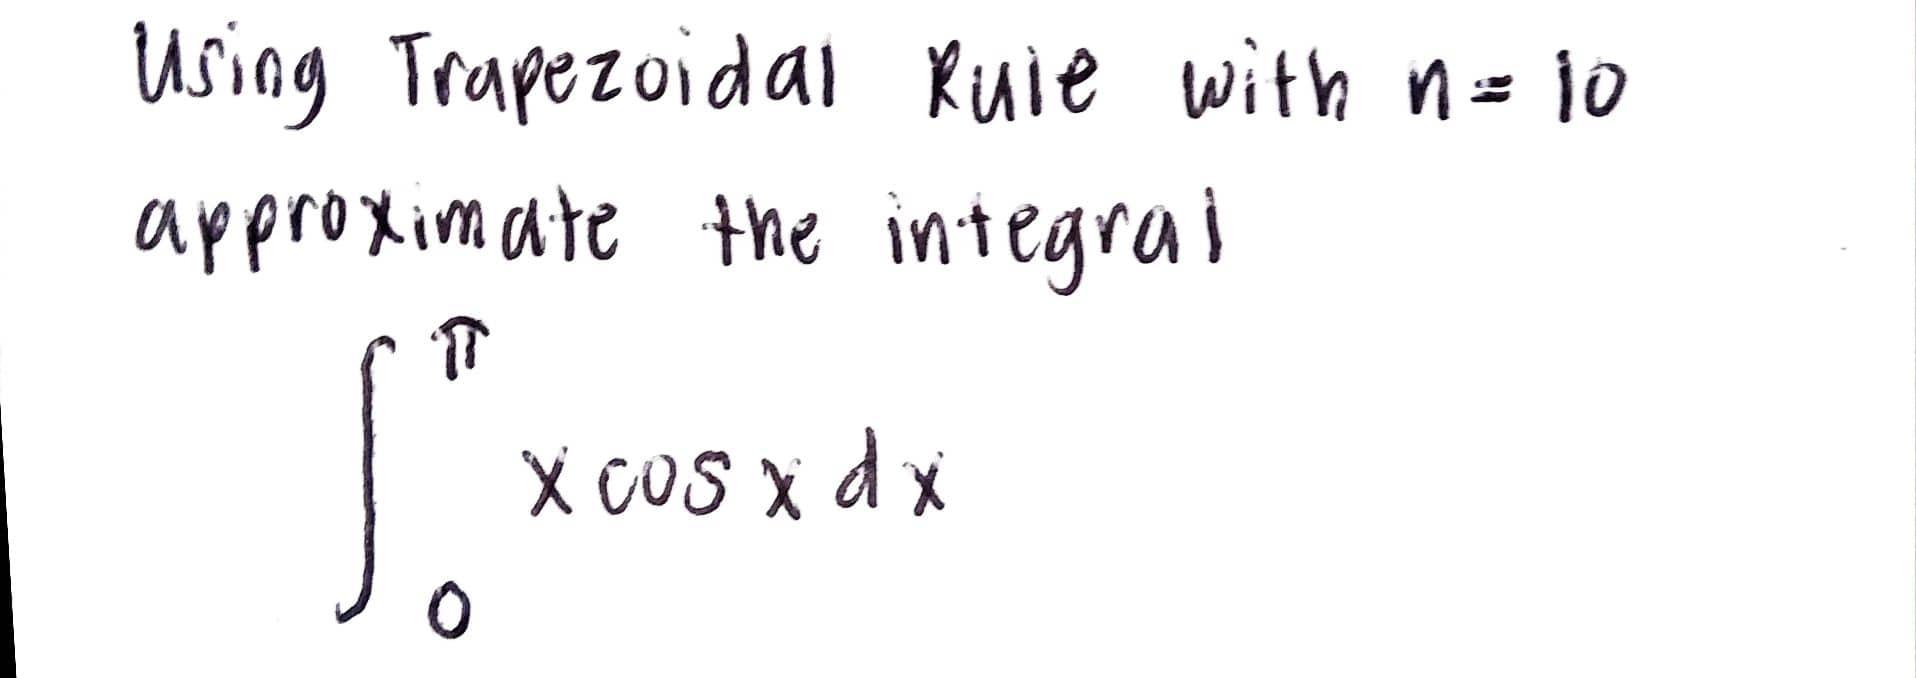 Using Trapezoidal Rule with n = 10
approximate the integral
∫₀^π x cos x dx